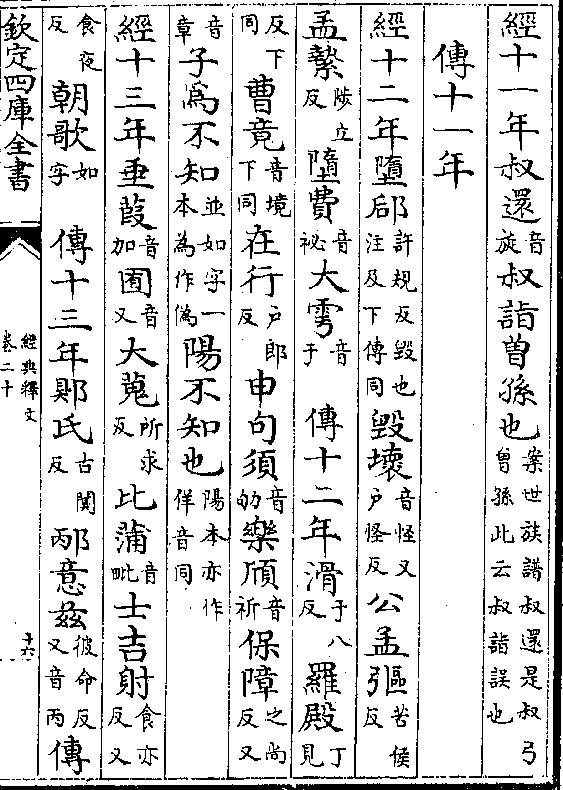 經十一年叔還音旋叔詣曽孫也案世族譜叔還是叔弓曽孫此云叔詣誤也
傳十一年
經十二年墮郈許規反毀也注及下傳同毀壞音怪又戶怪反公孟彄苦侯反
孟縶陟立反墮費音祕大雩音于 傳十二年滑于八反羅殿丁見
反下同曹竟音境下同在行戶郎反申句須音劬樂頎音祈保障之尚反又
音章子為不知並如字一本為作偽陽不知也陽本亦作佯音同
經十三年垂葭音加囿音又大蒐所求反比蒲音毗士吉射食亦反又
食夜反朝歌如字 傳十三年郹氏古闃反邴意茲彼命反又音丙傳
欽定四庫全書
經典釋文
卷二十
十六